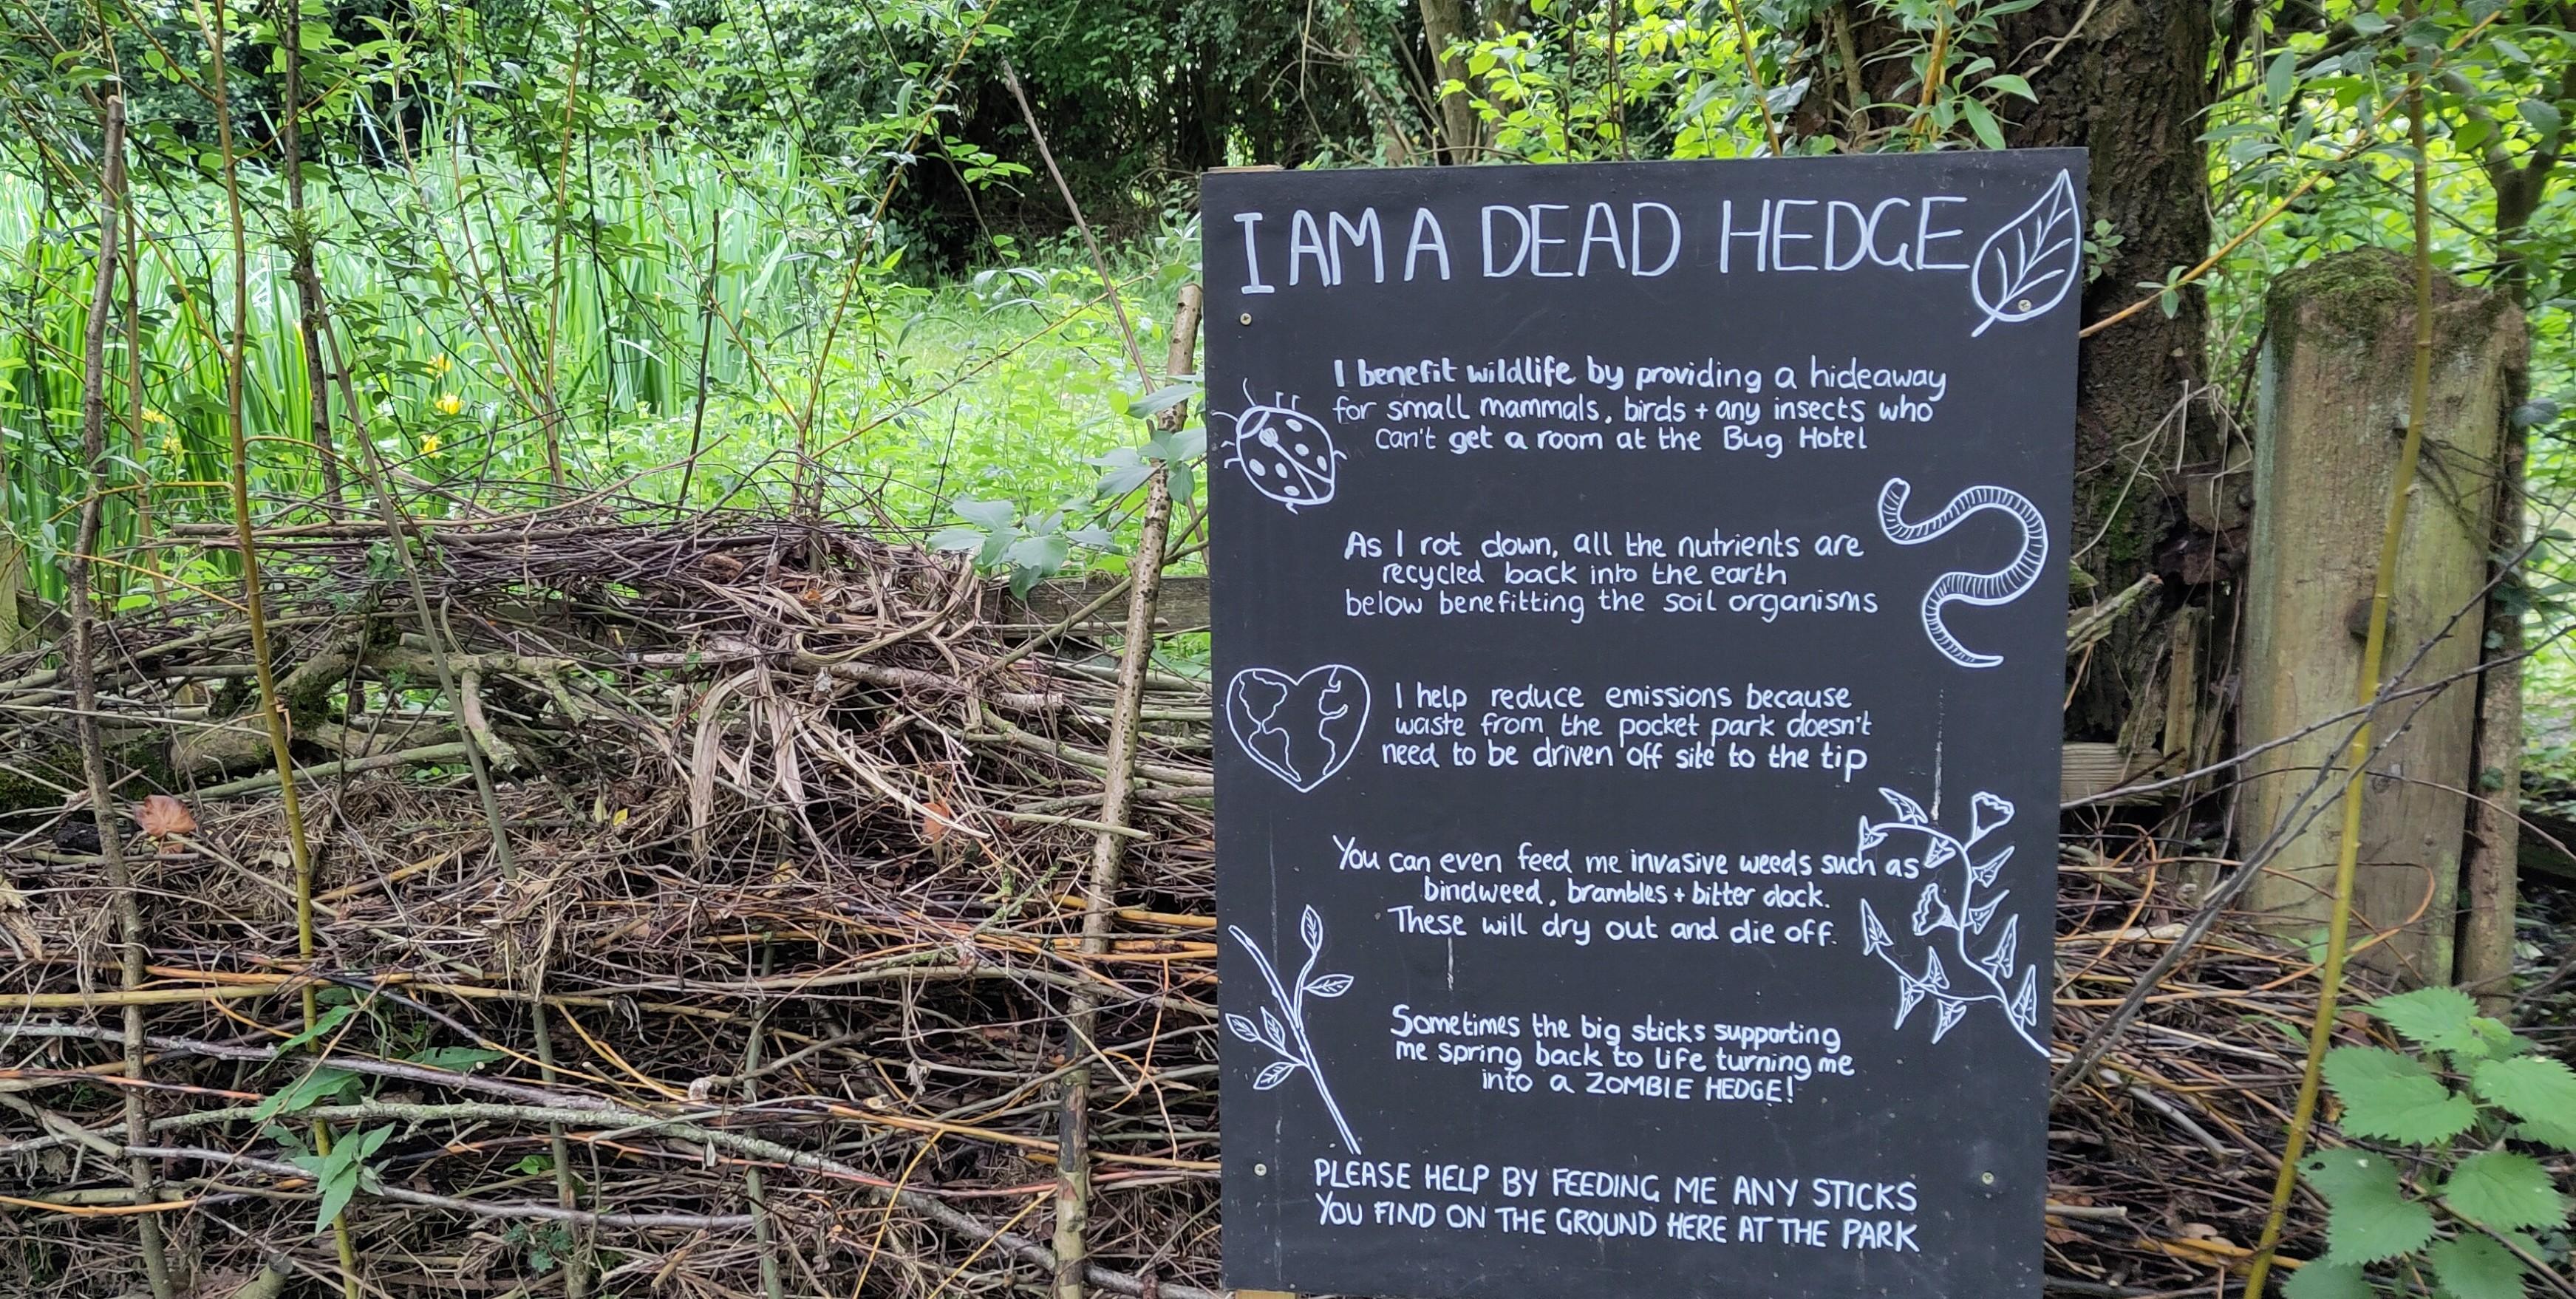 I AM A DEAD HEDGE
I benefit wildlife by providing a hideaway
for small mammals, birds + any insects who
can't get a room at the Bug Hotel
As I rot down, all the nutrients are
recycled back into the earth
below benefitting the soil organisms
I help reduce emissions because
waste from the pocket park doesn't
need to be driven off site to the tip
You can even feed me invasive weeds such as
bindweed, brambles + bitter dock.
These will dry out and die off.
Sometimes the big sticks supporting
me spring back to life turning me
into a ZOMBIE HEDGE!
PLEASE HELP BY FEEDING ME ANY STICKS
YOU FIND ON THE GROUND HERE AT THE PARK